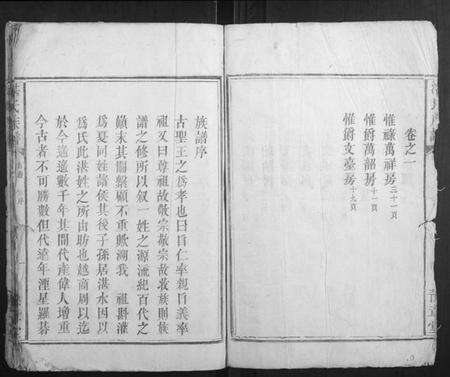 卷之一
惟祿萬祥房三十一頁
惟爵萬韶房十一頁
惟爵文臺房十九頁
族譜序
古聖王之爲孝也曰自仁率親自義率
祖又曰尊祖故敬宗敬宗故收族則族
譜之修所以叙一姓之源流紀百代之
顛末其關繫顧不重歟溯我 祖斟灌
爲夏同姓諸侯其後子孫居湛水因以
爲氏此湛姓之所由昉也越商周以迄
於今遙遙數千年其間代產偉人增重
今古者不可勝數但代遠年湮星羅碁